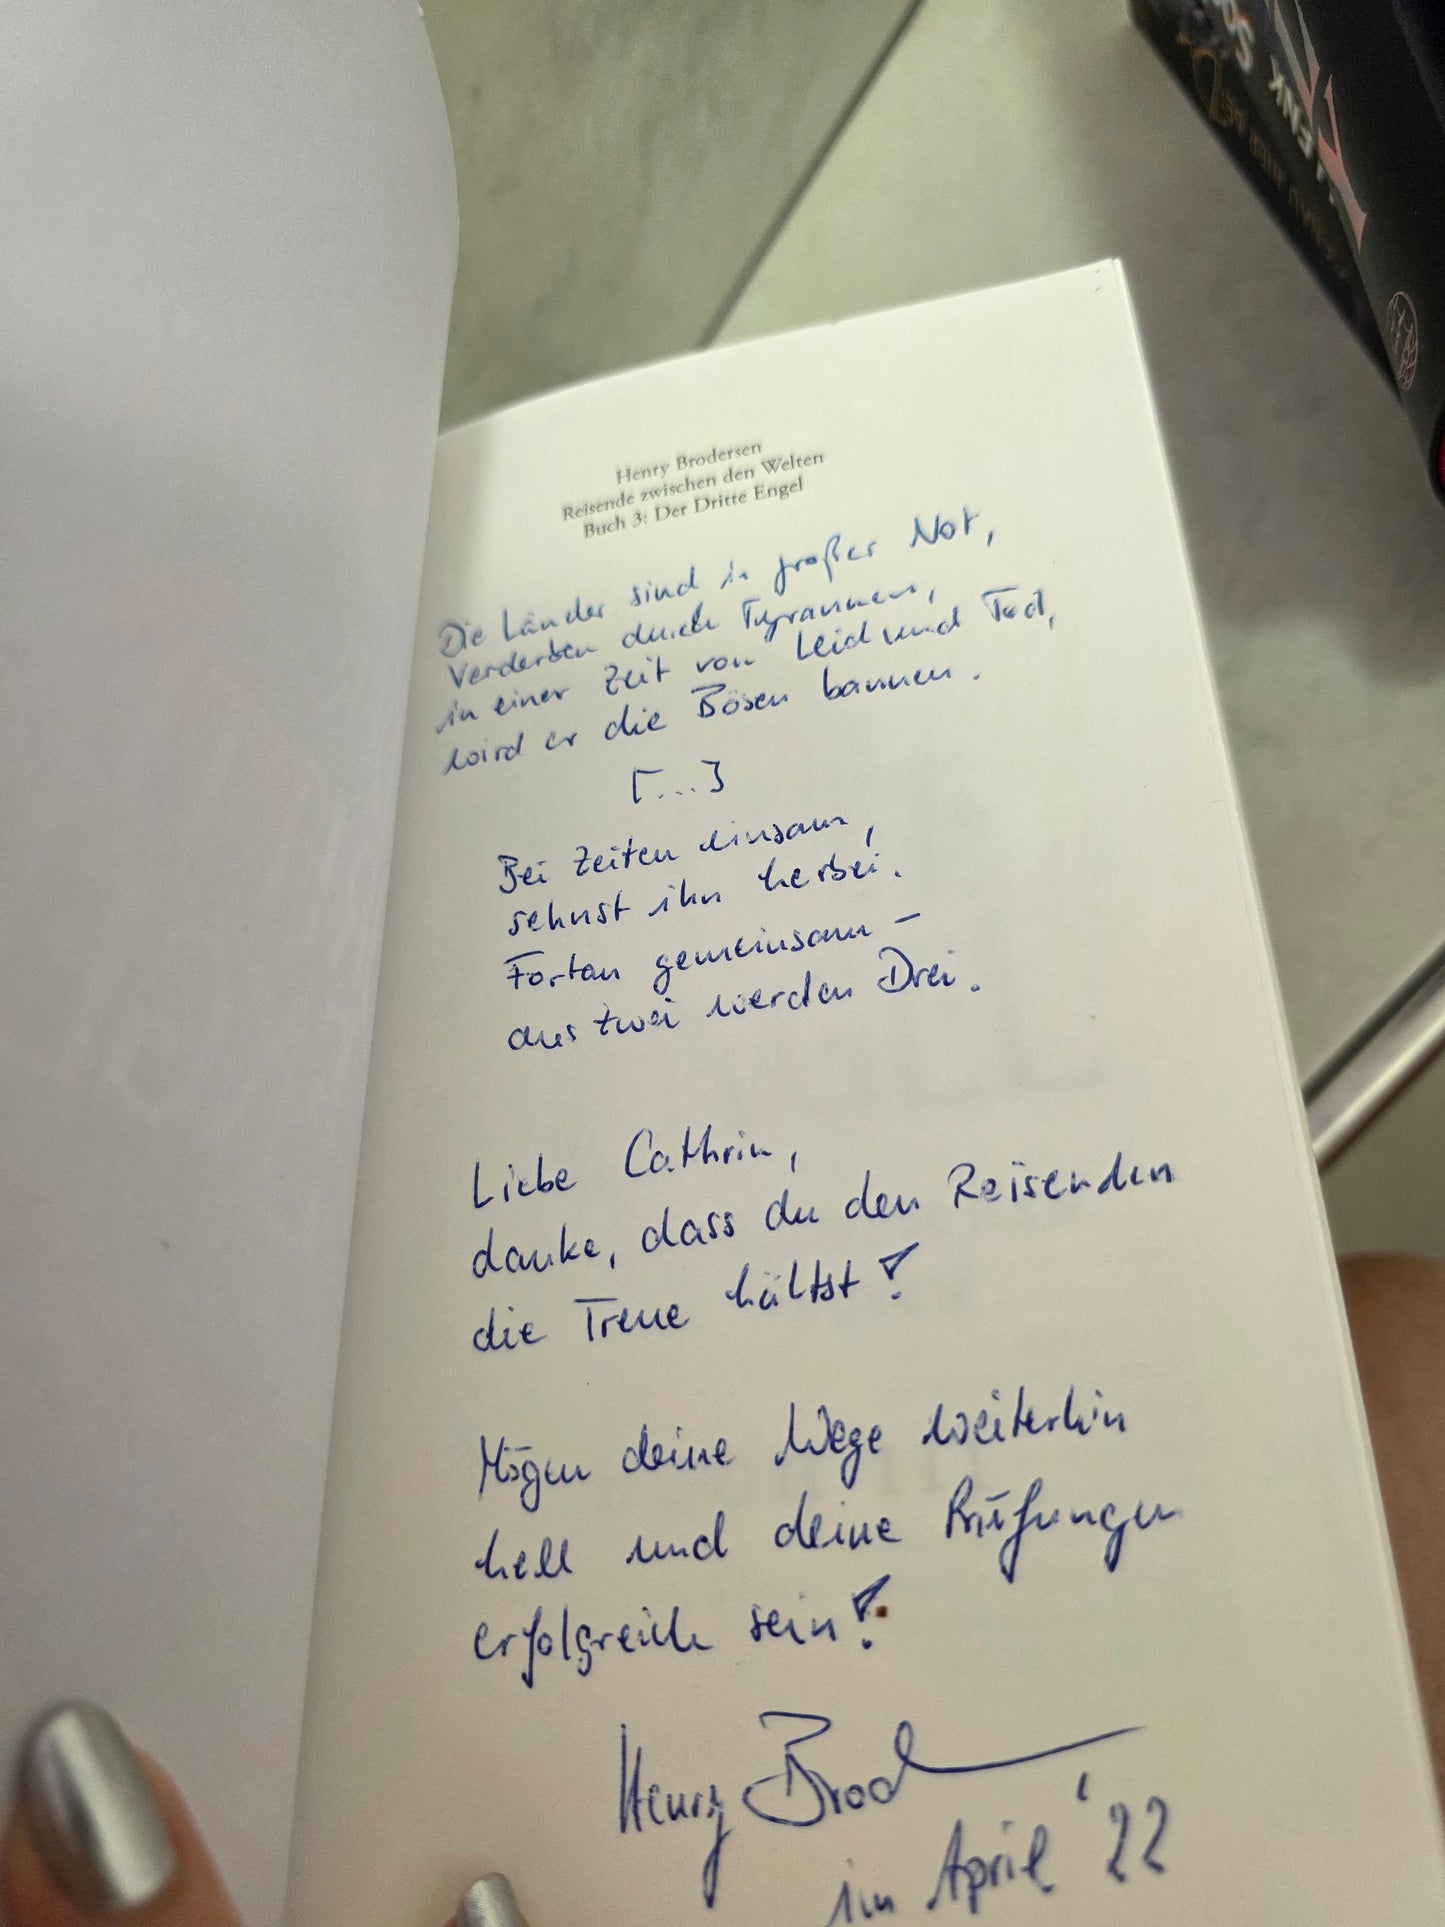 Henry Brodersen
Reisende zwischen den Welten
Buch 3: Der Dritte Engel
Die Länder sind in großer Not,
verderben durch Tyrannen,
in einer Zeit von Leid und Tod,
wird er die Bösen bannen.
[...]
Bei Zeiten einsam,
sehnst ihn herbei.
Fortan gemeinsam –
aus zwei werden Drei.
Liebe Cathrin,
danke, dass du den Reisenden
die Treue hältst!
Mögen deine Wege weiterhin
hell und deine Prüfungen
erfolgreich sein!
Henry Brod
im April '22